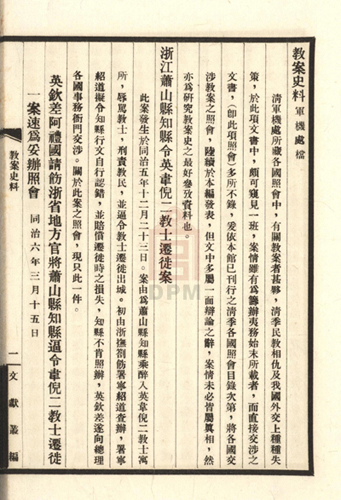 教案史料 軍機處檔
清軍機處所藏各國照會中，有關教案者甚夥，清季民教相仇及我國外交上種種失
策，於此項文書中，頗可窺見一班，案情雖有爲籌辦夷務始末所載者，而直接交涉之
文書，（卽此項照會）多所不錄，爰依本館已刊行之清季各國照會目錄次第，將各國交
涉教案之照會，陸續於本編發表，但文中多屬一面辯論之辭，案情未必皆屬眞相，然
亦爲研究教案史之最好參攷資料也。
浙江蕭山縣知縣令英韋倪二教士遷徙案
此案發生於同治五年十二月二十三日。案由爲蕭山縣知縣乘醉入英韋倪二教士寓
所，辱罵教士，刑責教民，並逼令教士遷徙出城。初由浙撫飭署寧紹道查辦，署寧
紹道擬令知縣行文自行認錯，並賠償遷徙時之損失，知縣不肯照辦，英欽差遂向總理
各國事務衙門交涉。關於此案之照會，現只此一件。
英欽差阿禮國請飭浙省地方官將蕭山縣知縣逼令韋倪二教士遷徙
一案速爲妥辦照會 同治六年三月十五日
教案史料
一 文獻叢編